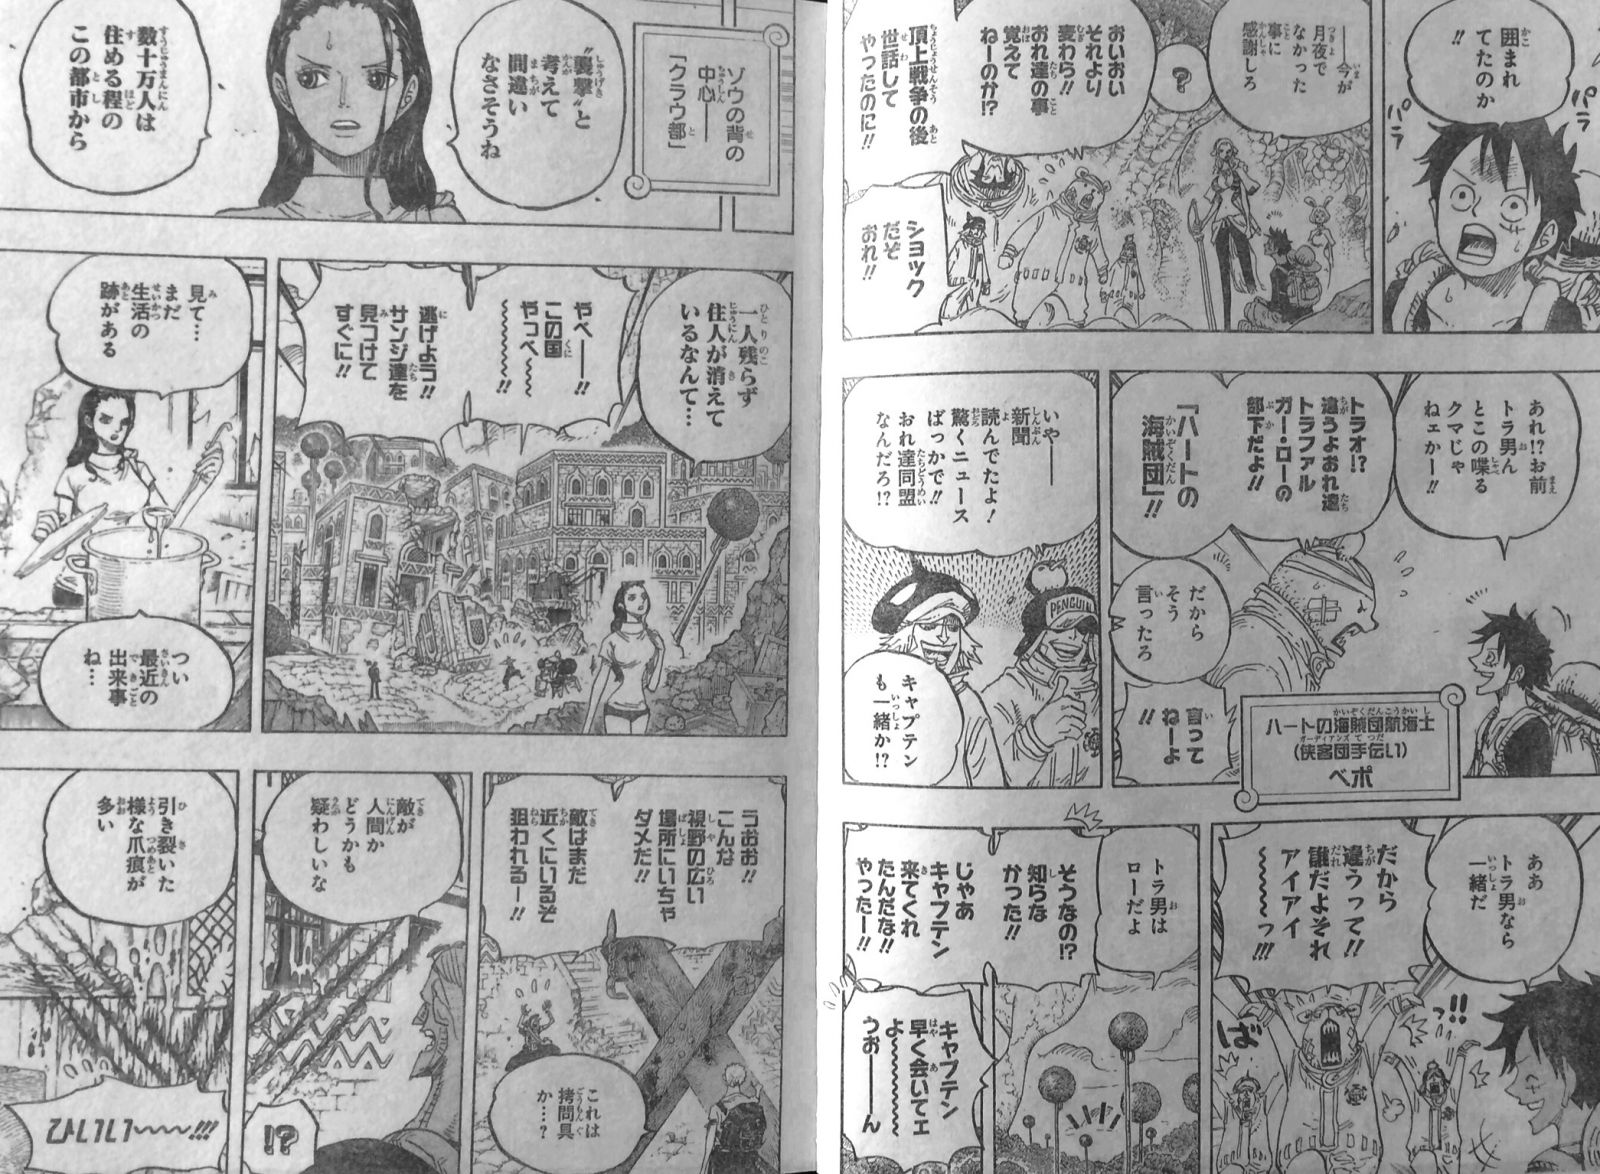 囲まれ
てたのか
!!
パラ
パラ
――今が
月夜で
なかった
事に
感謝しろ
?
おいおい
それより
変わら!!
おれ達の事
覚えて
ねーのか!?
頂上戦争の後
世話して
やったのに!!
ショック
だぞ
おれ!!
あれ!?お前
トラ男ん
とこの喋る
クマじゃ
ねェかー!!
トラオ!?
違うよおれ達
トラファル
ガー・ローの
部下だよ!!
「ハートの
海賊団」!!
だから
そう
言ったろ
言って
ねーよ
!!
ハートの海賊団航海士
(侠客団手伝い)
ベポ
いやー――
新聞
読んでたよ!
驚くニュース
ばっかで!!
おれ達同盟
なんだろ!?
PENGUIN
キャプテン
も一緒か!?
ああ
トラ男なら
一緒だ
だから
違うって!!
誰だよそれ
アイアイ
~~~~っ!!!
!!
ば
トラ男は
ローだよ
そうなの!?
知らな
かった!!
じゃあ
キャプテン
来てくれ
たんだな!!
やったー!!
キャプテン
早く会いてェ
よ~~~~~
うお――――ん
ゾウの背の
中心――
「クラウ都」
〝襲撃〟と
考えて
間違い
なさそうね
数十万人は
住める程の
この都市から
一人残らず
住人が消えて
いるなんて…
やべ――!!
この国
やっべ~~~
~~~~!!
逃げよう!!
サンジ達を
見つけて
すぐに!!
見て…
まだ
生活の
跡がある
つい
最近の
出来事
ね…
うおお!!
こんな
視野の広い
場所にいちゃ
ダメだ!!
敵はまだ
近くにいるぞ
狙われるー!!
これは
拷問具
か…?
敵が
人間か
どうかも
疑わしいな
!?
引き裂いた
様な爪痕が
多い
ひいい~~~~!!!